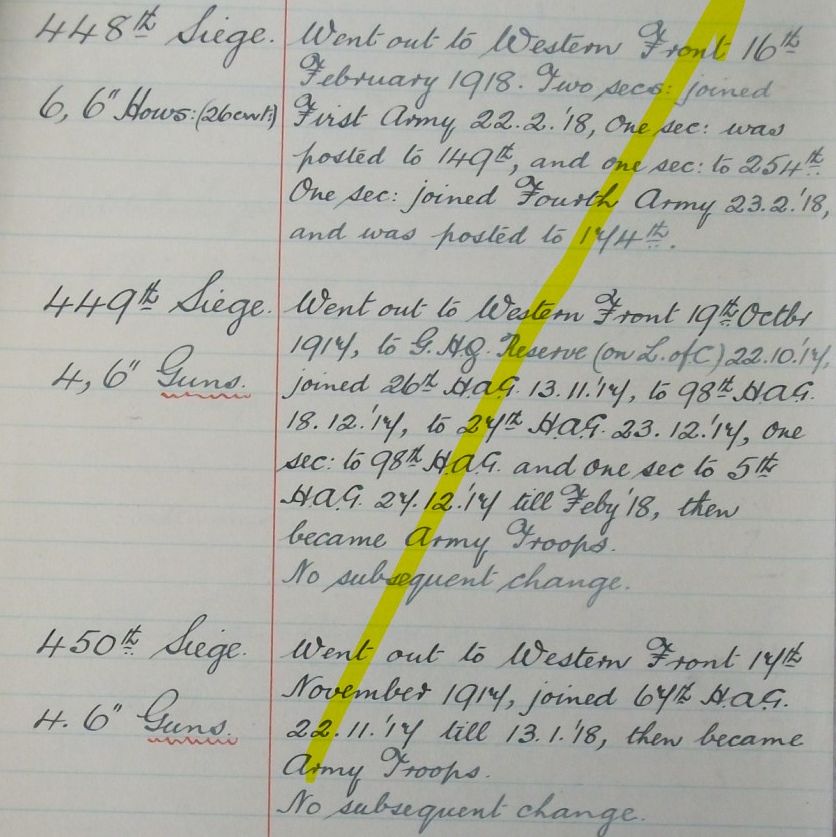 448th Siege. Went out to Western Front 16th
February 1918. Two secs: joined
6, 6" Hows: (26cwt:) First Army 22.2.'18, One sec: was
posted to 149th, and one sec: to 254th.
One sec: joined Fourth Army 23.2.'18,
and was posted to 174th.
449th Siege. Went out to Western Front 19th Octbr
1917, to G.H.Q. Reserve (on L. of C) 22.10.'17,
4, 6" Guns. joined 26th H.A.G. 13.11.'17, to 98th H.A.G.
18.12.'17, to 27th H.A.G. 23.12.'17, one
sec: to 98th H.A.G. and one sec to 5th
H.A.G. 27.12.'17 till Feby '18, then
became Army Troops.
No subsequent change.
450th Siege. Went out to Western Front 17th
November 1917, joined 67th H.A.G.
4. 6" Guns. 22.11.'17 till 13.1.'18, then became
Army Troops.
No subsequent change.